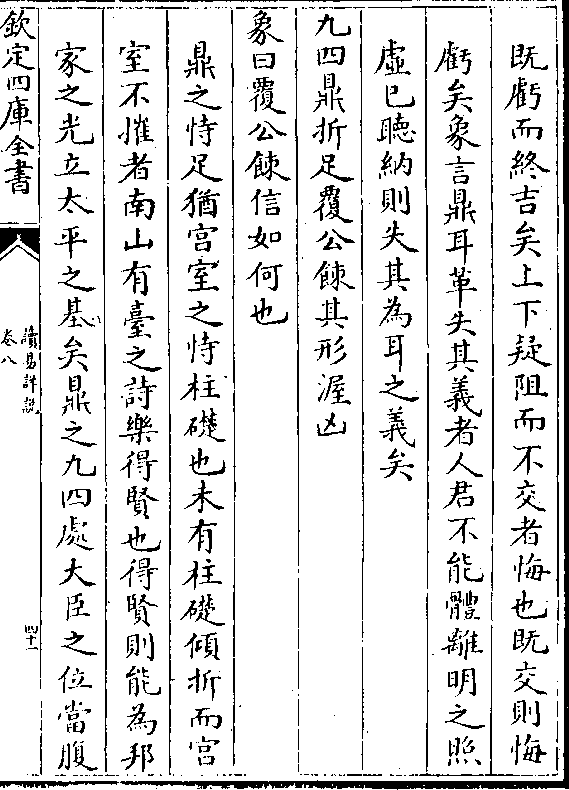 既虧而終吉矣上下疑阻而不交者悔也既交則悔
虧矣象言鼎耳革失其義者人君不能體離明之照
虛已聽納則失其為耳之義矣
九四鼎折足覆公餗其形渥凶
象曰覆公餗信如何也
鼎之恃足猶宫室之恃柱礎也未有柱礎傾折而宫
室不摧者南山有臺之詩樂得賢也得賢則能為邦
家之光立太平之基矣鼎之九四處大臣之位當腹
欽定四庫全書
讀易詳說
卷八
四十一